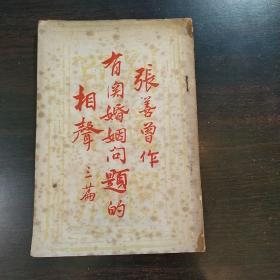 張善曾作
有関婚姻问題的
相聲三篇